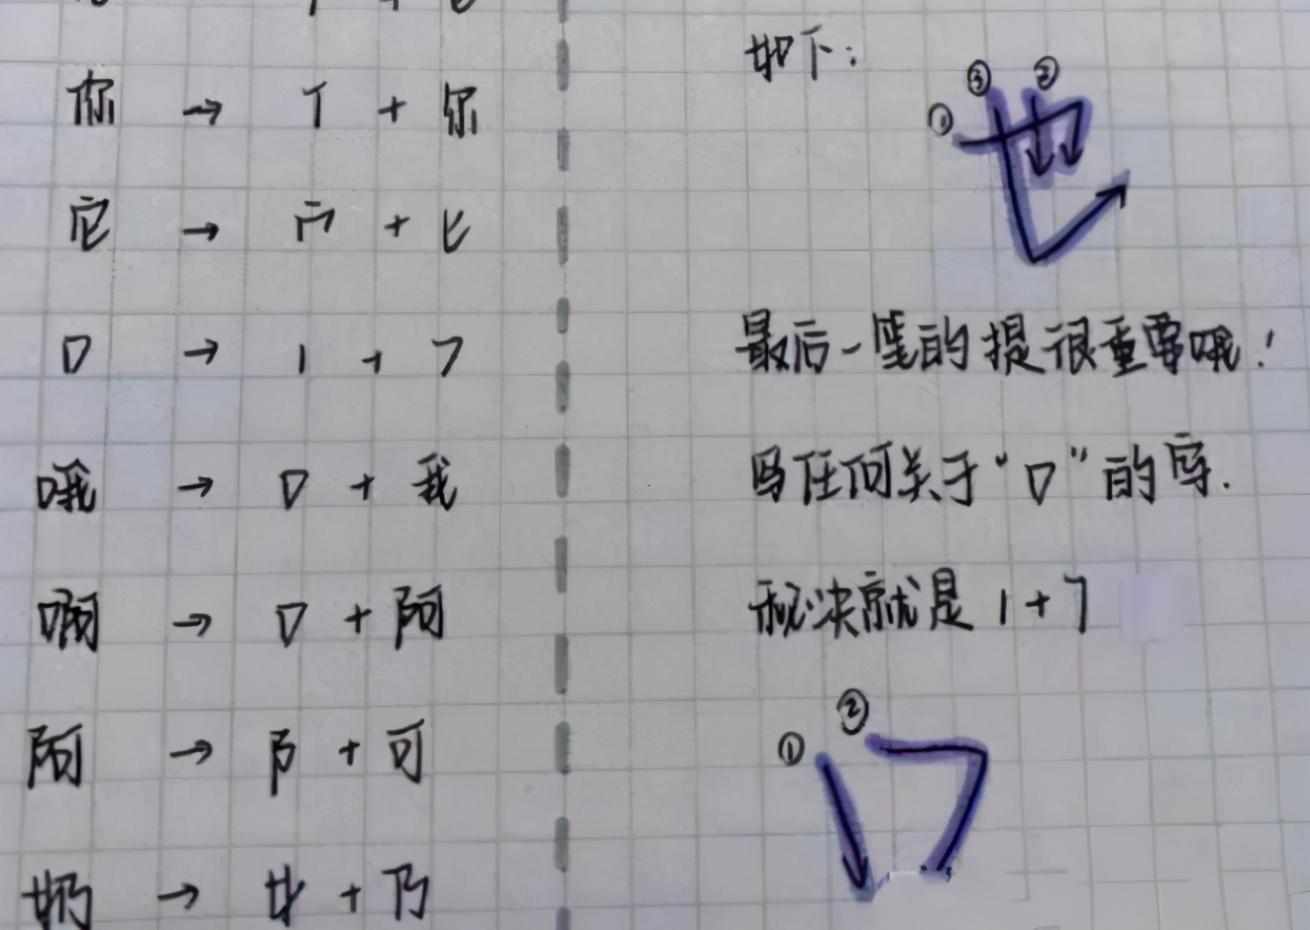 你 → 亻 + 尔
它 → 宀 + 匕
口 → 丨 + ㇇
哦 → 口 + 我
啊 → 口 + 阿
阿 → 阝 + 可
奶 → 女 + 乃
如下：
① ③ ②
也
最后一笔的提很重要哦！
写任何关于“口”的字.
秘决就是 丨+㇇
① ②
口